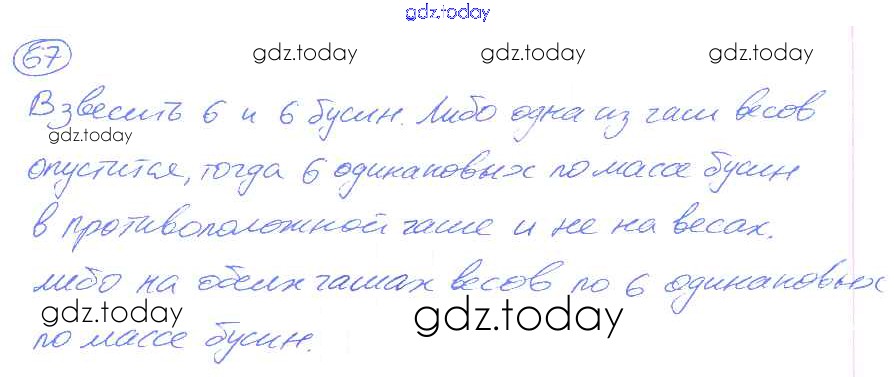 gdz.today
67 gdz.today gdz.today gdz.today
Взвесить 6 и 6 бусин. Либо одна из чаш весов
gdz.today
опустится, тогда 6 одинаковых по массе бусин
в противоположной чаше и не на весах.
либо на обеих чашах весов по 6 одинаковых
gdz.today gdz.today
по массе бусин.